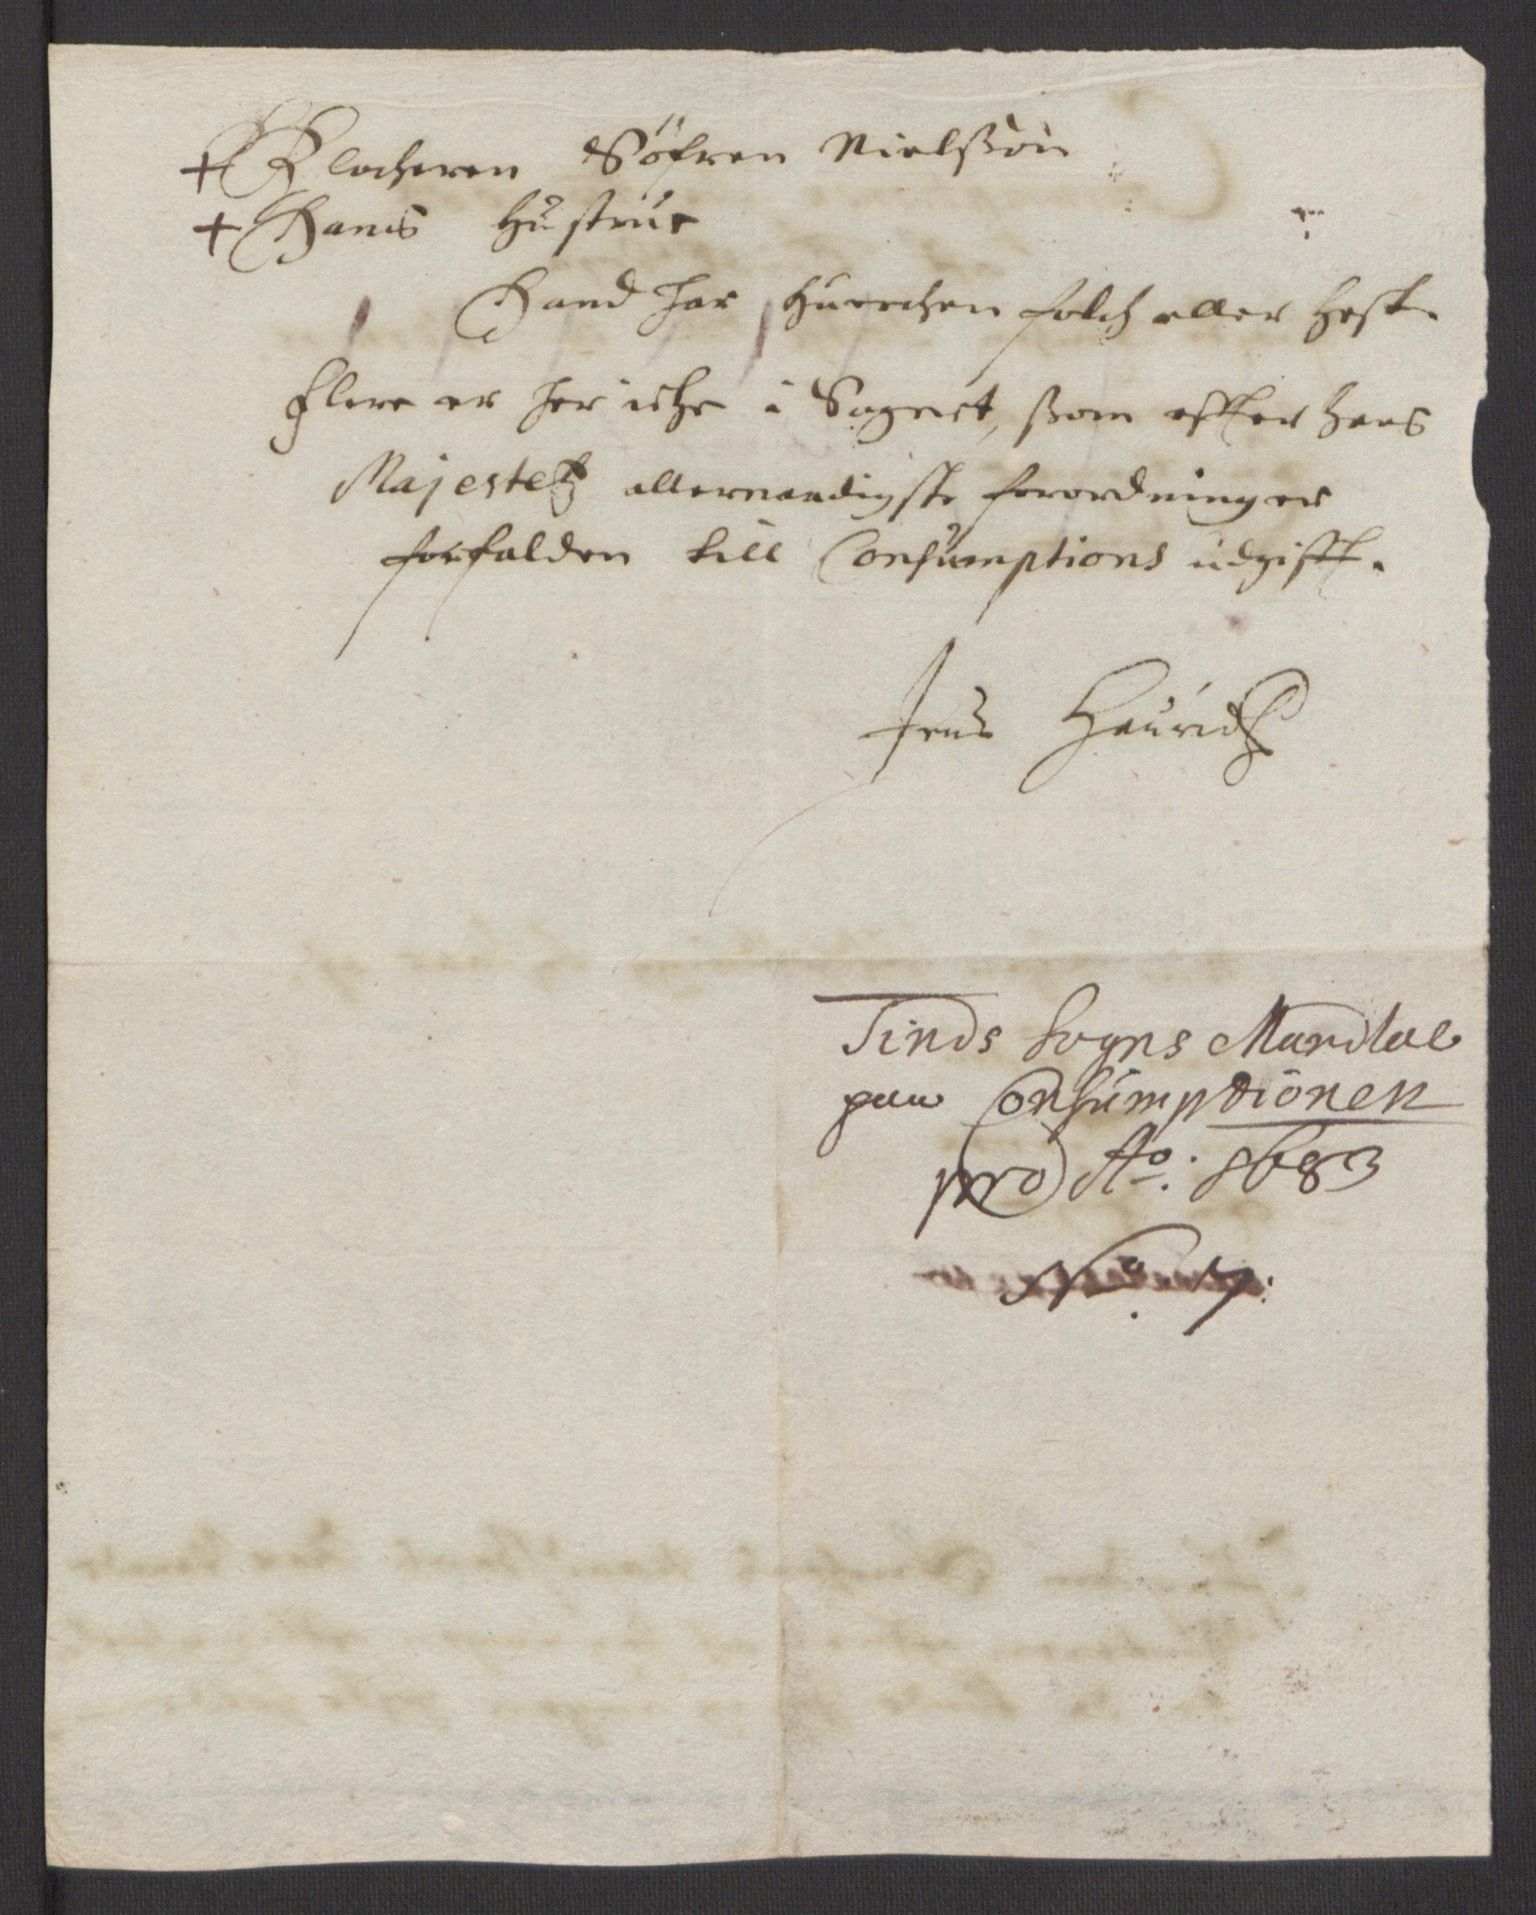 + Klocheren Söfren Nielßön
+ Hans Hustrue
Hand har huerchen folch eller hest.
flere er her iche i Sognet, ßom effter hans
Majestetz allernaadigste forordning er
forfalden till Consumptions udgifft.
Jens Henrids
Tinds Sogns Mandtal
paa Consumptionen
pro Ao: 1683
No. 7: